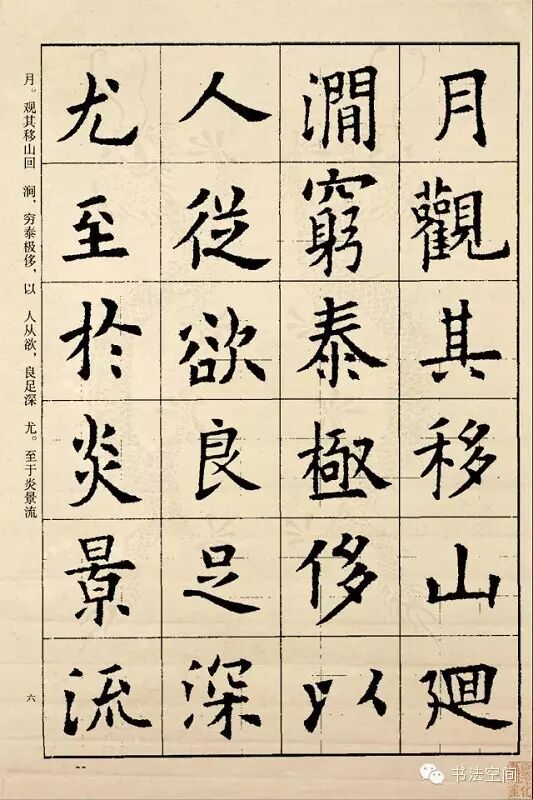 月觀其移山廻
澗窮泰極侈以
人從欲良足深
尤至於炎景流
月。观其移山回 涧、穷泰极侈，以 人从欲，良足深 尤。至于炎景流
六
书法空间